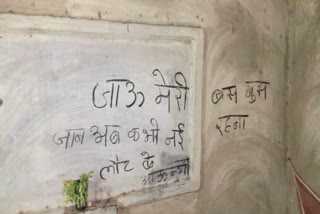 जाऊ मेरी
जान अब कभी नई
लौट के
आऊ
बस खुस
रहना